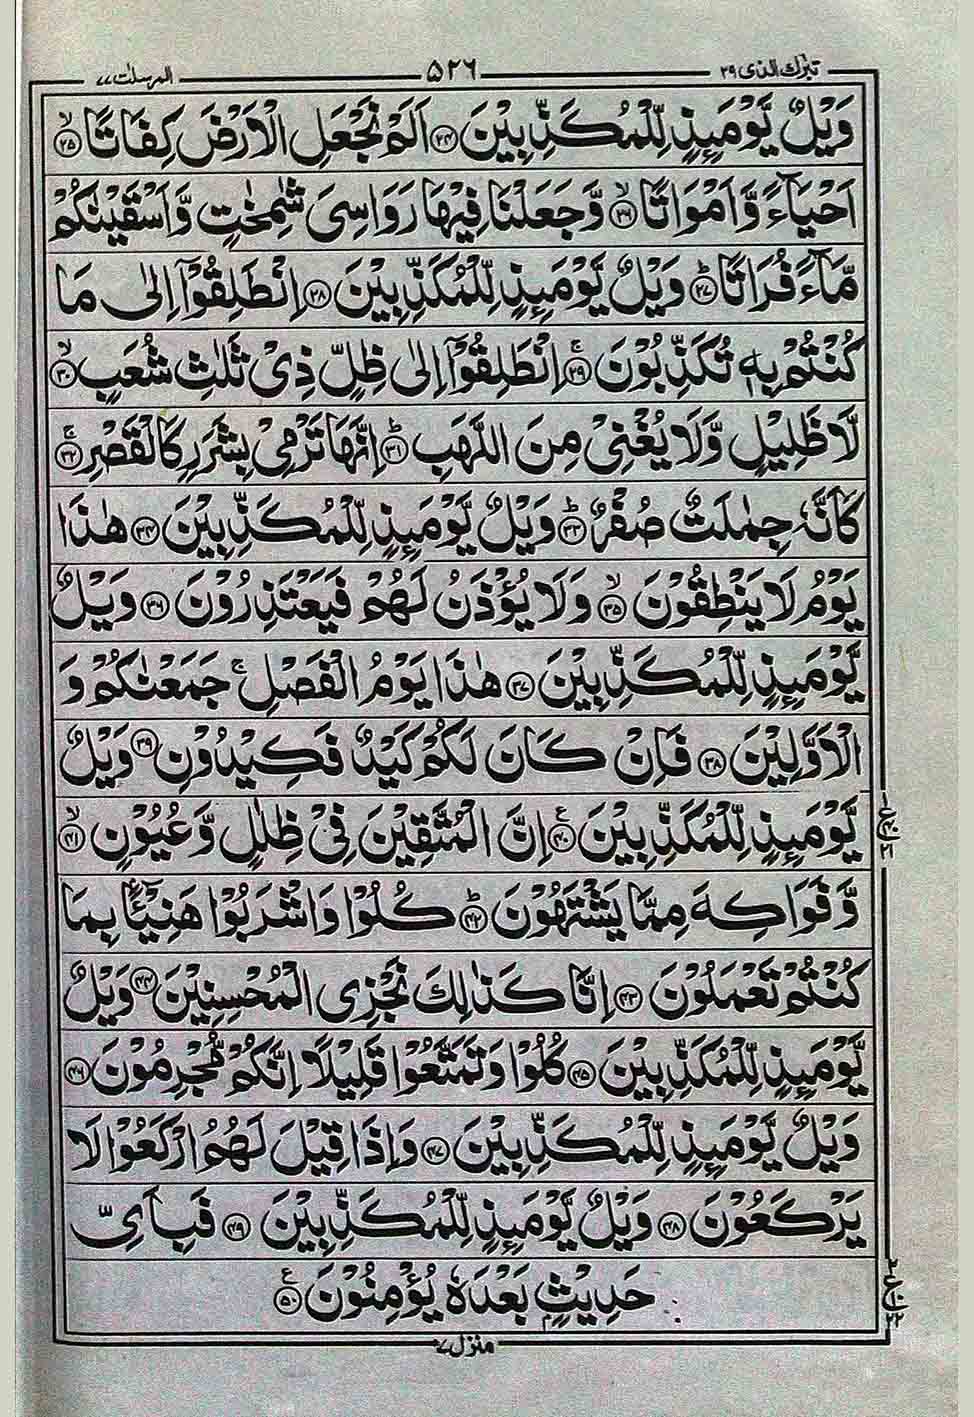 تبٰرك الذى ۲۹
۵۲۶
المرسلٰت ۷۷
وَيْلٌ يَّوْمَئِذٍ لِّلْمُكَذِّبِيْنَ ﴿۲۴﴾ اَلَمْ نَجْعَلِ الْاَرْضَ كِفَاتًا ﴿۲۵﴾ۙ
اَحْيَآءً وَّاَمْوَاتًا ﴿۲۶﴾ۙ وَّجَعَلْنَا فِيْهَا رَوَاسِىَ شٰمِخٰتٍ وَّاَسْقَيْنٰكُمْ
مَّآءً فُرَاتًا ﴿۲۷﴾ؕ وَيْلٌ يَّوْمَئِذٍ لِّلْمُكَذِّبِيْنَ ﴿۲۸﴾ اِنْطَلِقُوْٓا اِلٰى مَا
كُنْتُمْ بِهٖ تُكَذِّبُوْنَ ﴿۲۹﴾ۚ اِنْطَلِقُوْٓا اِلٰى ظِلٍّ ذِىْ ثَلٰثِ شُعَبٍ ﴿۳۰﴾ۙ
لَّا ظَلِيْلٍ وَّلَا يُغْنِىْ مِنَ اللَّهَبِ ﴿۳۱﴾ؕ اِنَّهَا تَرْمِىْ بِشَرَرٍ كَالْقَصْرِ ﴿۳۲﴾ۚ
كَاَنَّهٗ جِمٰلَتٌ صُفْرٌ ﴿۳۳﴾ؕ وَيْلٌ يَّوْمَئِذٍ لِّلْمُكَذِّبِيْنَ ﴿۳۴﴾ هٰذَا
يَوْمُ لَا يَنْطِقُوْنَ ﴿۳۵﴾ۙ وَلَا يُؤْذَنُ لَهُمْ فَيَعْتَذِرُوْنَ ﴿۳۶﴾ وَيْلٌ
يَّوْمَئِذٍ لِّلْمُكَذِّبِيْنَ ﴿۳۷﴾ هٰذَا يَوْمُ الْفَصْلِ ۚ جَمَعْنٰكُمْ وَ
الْاَوَّلِيْنَ ﴿۳۸﴾ فَاِنْ كَانَ لَكُمْ كَيْدٌ فَكِيْدُوْنِ ﴿۳۹﴾ وَيْلٌ
يَّوْمَئِذٍ لِّلْمُكَذِّبِيْنَ ﴿۴۰﴾ع اِنَّ الْمُتَّقِيْنَ فِىْ ظِلٰلٍ وَّعُيُوْنٍ ﴿۴۱﴾ۙ
وَّفَوَاكِهَ مِمَّا يَشْتَهُوْنَ ﴿۴۲﴾ؕ كُلُوْا وَاشْرَبُوْا هَنِيْٓئًۢا بِمَا
كُنْتُمْ تَعْمَلُوْنَ ﴿۴۳﴾ اِنَّا كَذٰلِكَ نَجْزِى الْمُحْسِنِيْنَ ﴿۴۴﴾ وَيْلٌ
يَّوْمَئِذٍ لِّلْمُكَذِّبِيْنَ ﴿۴۵﴾ كُلُوْا وَتَمَتَّعُوْا قَلِيْلًا اِنَّكُمْ مُّجْرِمُوْنَ ﴿۴۶﴾
وَيْلٌ يَّوْمَئِذٍ لِّلْمُكَذِّبِيْنَ ﴿۴۷﴾ وَاِذَا قِيْلَ لَهُمُ ارْكَعُوْا لَا
يَرْكَعُوْنَ ﴿۴۸﴾ وَيْلٌ يَّوْمَئِذٍ لِّلْمُكَذِّبِيْنَ ﴿۴۹﴾ فَبِاَىِّ
حَدِيْثٍۢ بَعْدَهٗ يُؤْمِنُوْنَ ﴿۵۰﴾ع
منزل ۷